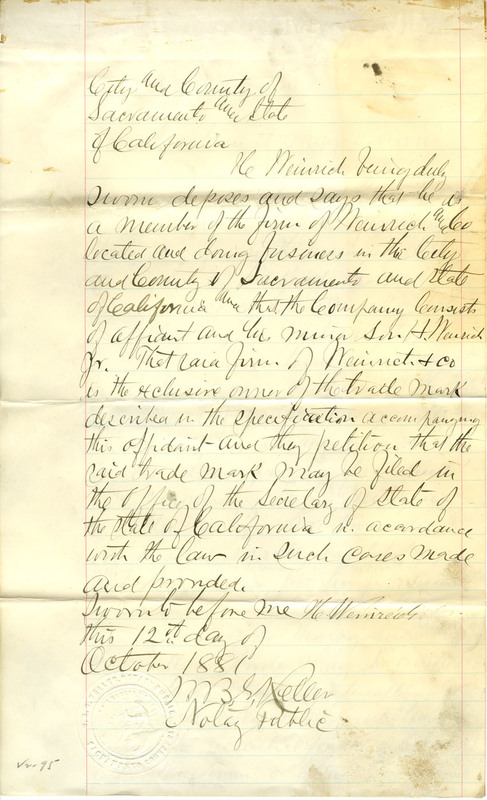 City and County of
Sacramento and State
of California
H Weinrich being duly
sworn deposes and says that he is
a member of the firm of Weinrich and Co
located and doing business in the City
and County of Sacramento and State
of California and that the Company Consists
of affiant and his minor son H. Weinrich
Jr. That said firm of Weinrich & Co
is the exclusive owner of the trade mark
described in the specification accompanying
this affidavit and they petition that the
said trade mark may be filed in
the Office of the Secretary of State of
the State of California in acordance
with the law in such cases made
and provided.
Sworn to before me H Weinrich
this 12th day of
October 1881
Keller
Notary Public